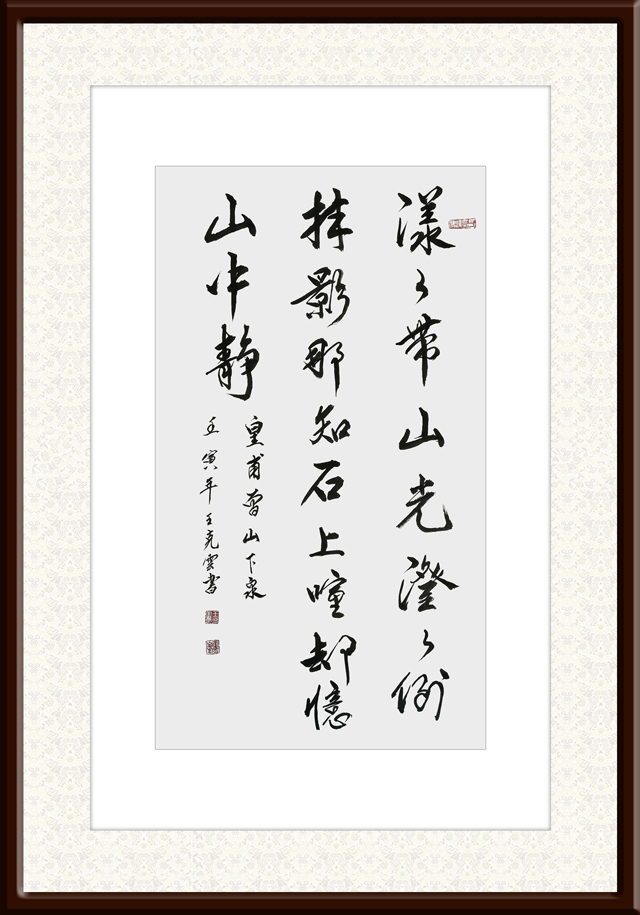 漾々带山光澄々倒
抹影那知石上喧却憶
山中静
皇甫曾山下泉
壬寅年王克雲書